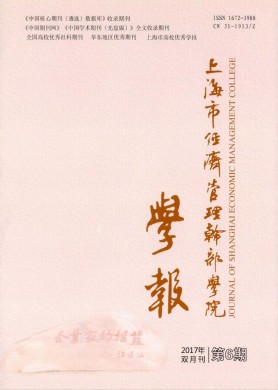 《中国核心期刊(遴选)数据库》收录期刊
《中国期刊网》《中国学术期刊(光盘版)》全文收录期刊
全国高校优秀社科期刊 华东地区优秀期刊 上海市高校优秀学报
ISSN 1672-3988
CN 31-1913/Z
上海市经济管理干部学院
JOURNAL OF SHANGHAI ECONOMIC MANAGEMENT COLLEGE
學報
企業家的搖籃
2017年
双月刊
第6期